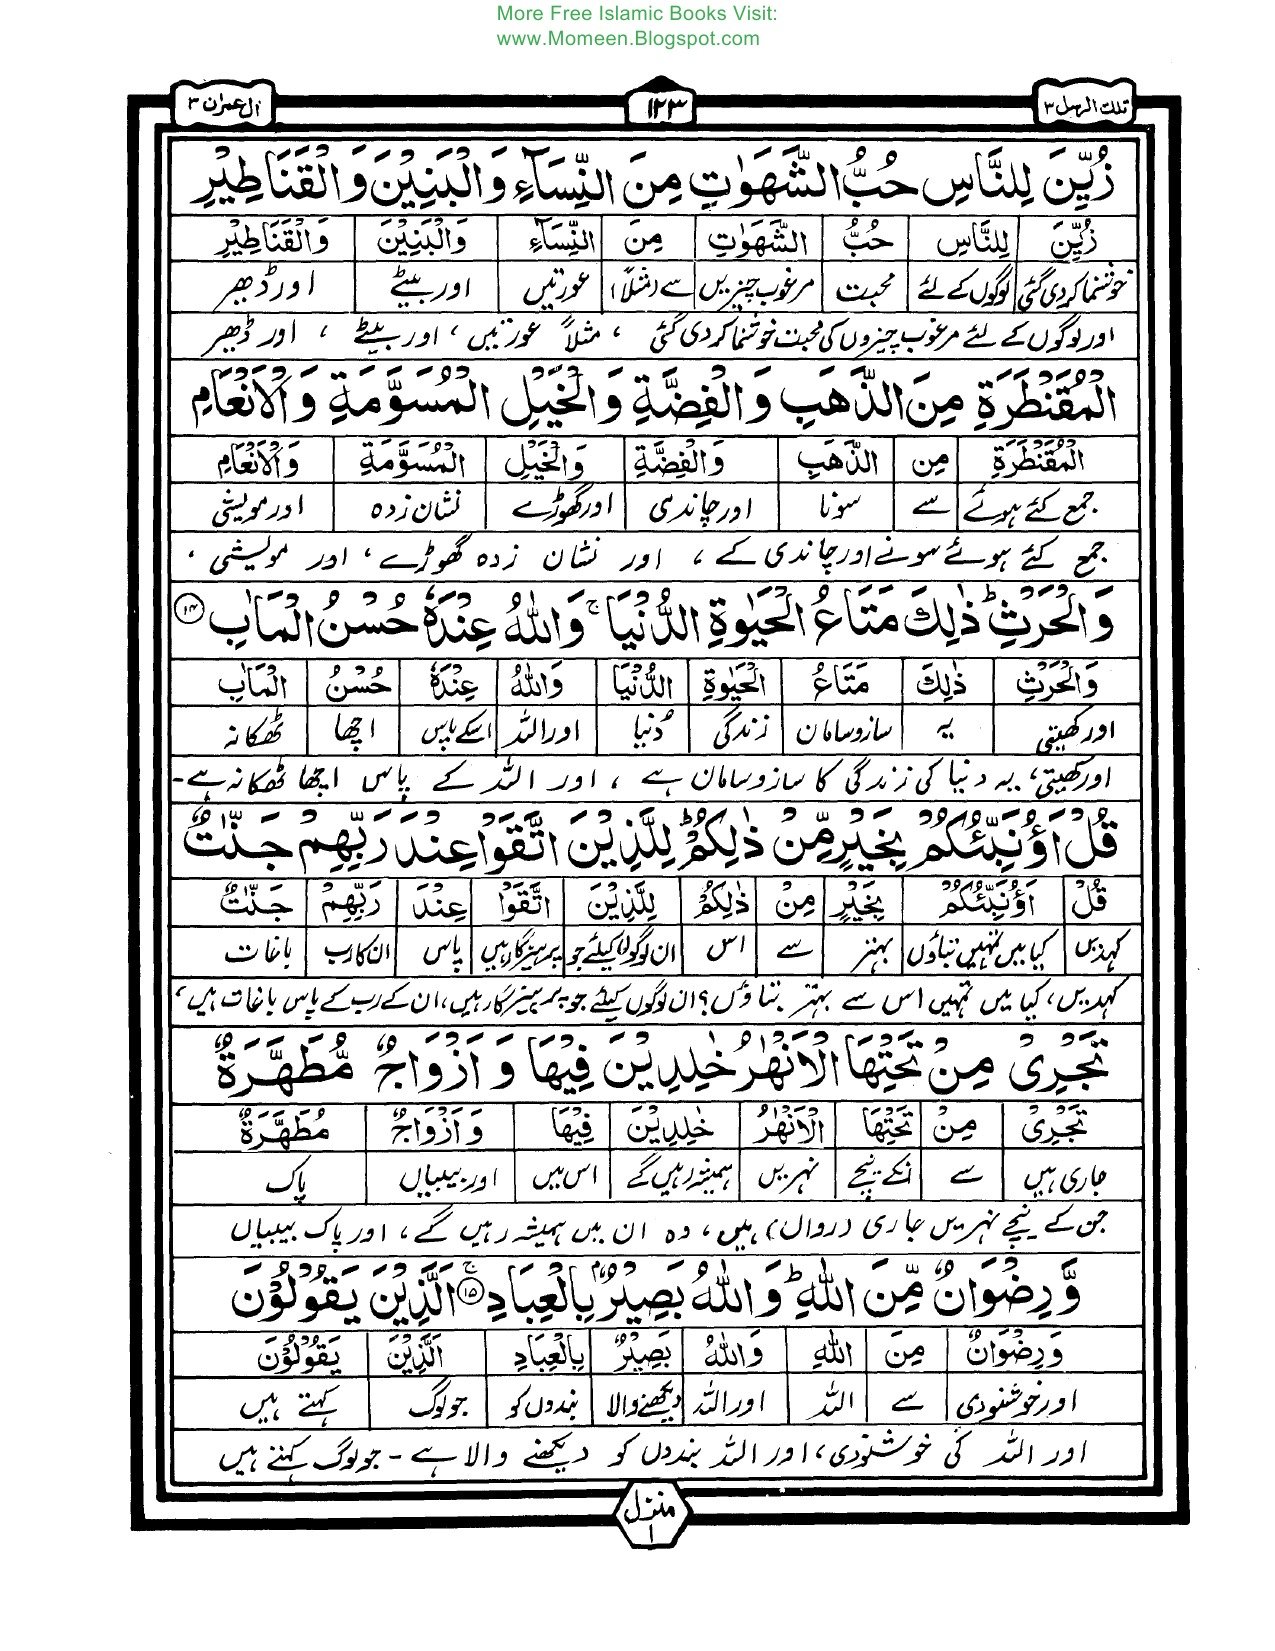 More Free Islamic Books Visit:
www.Momeen.Blogspot.com
تلك الرسل ٣
١٢٣
آل عمران ٣
زُيِّنَ لِلنَّاسِ حُبُّ الشَّهَوٰتِ مِنَ النِّسَآءِ وَالْبَنِيْنَ وَالْقَنَاطِيْرِ
زُيِّنَ لِلنَّاسِ حُبُّ الشَّهَوٰتِ مِنَ النِّسَآءِ وَالْبَنِيْنَ وَالْقَنَاطِيْرِ
خوشنما کردی گئی لوگوں کے لئے محبت مرغوب چیزیں سے (مثلاً) عورتیں اور بیٹے اور ڈھیر
اور لوگوں کے لئے مرغوب چیزوں کی محبت خوشنما کردی گئی ، مثلاً عورتیں ، اور بیٹے ، اور ڈھیر
الْمُقَنْطَرَةِ مِنَ الذَّهَبِ وَالْفِضَّةِ وَالْخَيْلِ الْمُسَوَّمَةِ وَالْاَنْعَامِ
الْمُقَنْطَرَةِ مِنَ الذَّهَبِ وَالْفِضَّةِ وَالْخَيْلِ الْمُسَوَّمَةِ وَالْاَنْعَامِ
جمع کئے ہوئے سے سونا اور چاندی اور گھوڑے نشان زدہ اور مویشی
جمع کئے ہوئے سونے اور چاندی کے ، اور نشان زدہ گھوڑے ، اور مویشی ،
وَالْحَرْثِ ؕ ذٰلِكَ مَتَاعُ الْحَيٰوةِ الدُّنْيَا ۚ وَاللّٰهُ عِنْدَهٗ حُسْنُ الْمَاٰبِ ۱۴
وَالْحَرْثِ ذٰلِكَ مَتَاعُ الْحَيٰوةِ الدُّنْيَا وَاللّٰهُ عِنْدَهٗ حُسْنُ الْمَاٰبِ
اور کھیتی یہ سازوسامان زندگی دُنیا اور اللہ اسکے پاس اچھا ٹھکانہ
اور کھیتی، یہ دنیا کی زندگی کا سازوسامان ہے ، اور اللہ کے پاس اچھا ٹھکانہ ہے۔
قُلْ اَؤُنَبِّئُكُمْ بِخَيْرٍ مِّنْ ذٰلِكُمْ ؕ لِلَّذِيْنَ اتَّقَوْا عِنْدَ رَبِّهِمْ جَنّٰتٌ
قُلْ اَؤُنَبِّئُكُمْ بِخَيْرٍ مِنْ ذٰلِكُمْ لِلَّذِيْنَ اتَّقَوْا عِنْدَ رَبِّهِمْ جَنّٰتٌ
کہدیں کیا میں تمہیں بتاؤں بہتر سے اس ان لوگوں کیلئے جو پرہیزگار ہیں پاس ان کا رب باغات
کہدیں، کیا میں تمہیں اس سے بہتر بتاؤں؟ ان لوگوں کیلئے جو پرہیزگار ہیں، ان کے رب کے پاس باغات ہیں،
تَجْرِىْ مِنْ تَحْتِهَا الْاَنْهٰرُ خٰلِدِيْنَ فِيْهَا وَ اَزْوَاجٌ مُّطَهَّرَةٌ
تَجْرِىْ مِنْ تَحْتِهَا الْاَنْهٰرُ خٰلِدِيْنَ فِيْهَا وَ اَزْوَاجٌ مُطَهَّرَةٌ
جاری ہیں سے انکے نیچے نہریں ہمیشہ رہیں گے اس میں اور بیبیاں پاک
جن کے نیچے نہریں جاری (رواں) ہیں، وہ ان میں ہمیشہ رہیں گے ، اور پاک بیبیاں
وَّ رِضْوَانٌ مِّنَ اللّٰهِ ؕ وَاللّٰهُ بَصِيْرٌۢ بِالْعِبَادِ ۚ ۱۵ اَلَّذِيْنَ يَقُوْلُوْنَ
وَ رِضْوَانٌ مِنَ اللّٰهِ وَاللّٰهُ بَصِيْرٌ بِالْعِبَادِ اَلَّذِيْنَ يَقُوْلُوْنَ
اور خوشنودی سے اللہ اور اللہ دیکھنے والا بندوں کو جو لوگ کہتے ہیں
اور اللہ کی خوشنودی، اور اللہ بندوں کو دیکھنے والا ہے - جو لوگ کہتے ہیں
منزل
١